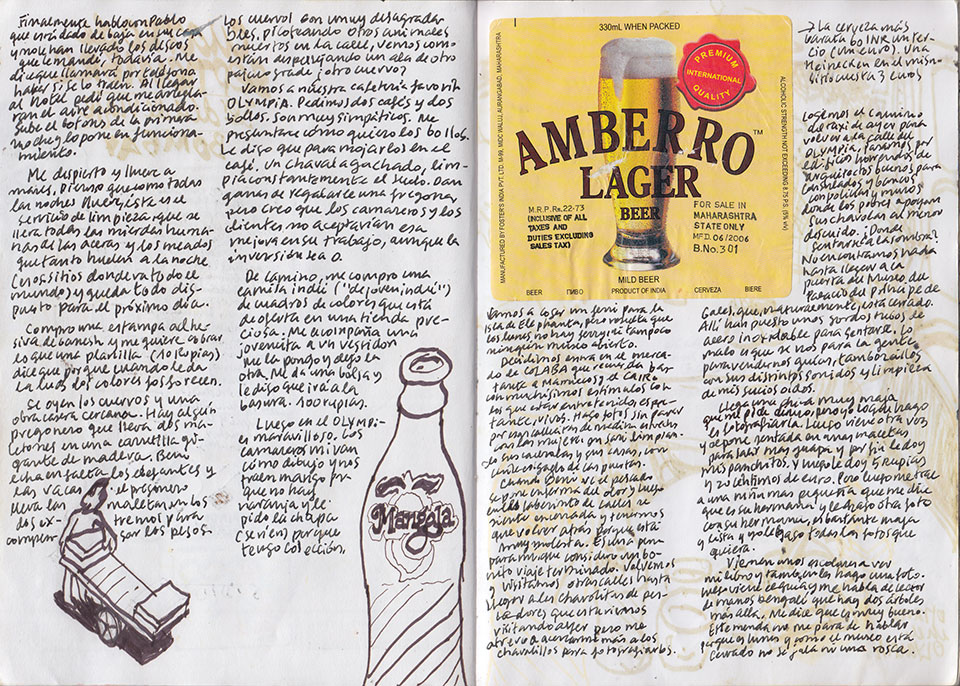 Finalmente hablo con Pablo
que está dado de baja en su casa
y no le han llevado los discos
que le mandé, todavía. Me
dice que llamará por teléfono
haber si se lo traen. Al llegar
al hotel pedí que me arregla-
ran el aire acondicionado.
Sube el botones de la primera
noche y lo pone en funciona-
miento.
Me despierto y llueve a
mares, pienso que como todas
las noches llueve, este es el
servicio de limpieza que se
lleva todas las mierdas huma-
nas de las aceras y los meados
que tanto huelen a la noche
(en os sitios donde va todo el
mundo) y queda todo dis-
puesto para el próximo día.
Compro una estampa adhe-
siva de Ganesh y me quiere cobrar
lo que una plantilla (10 rupias)
dice que porque cuando le da
la luz los colores fosforecen.
Se oyen los cuervos y una
obra casera cercana. Hay algún
pregonero que lleva dos ma-
letones en una carretilla gi-
gante de madera. Beni
echa en falta los elefantes y
las vacas. el pregonero
lleva las maletas en los
dos ex- tremos para
compen- sar los pesos.
Los cuervos son muy desagrada-
bles, picoteando otros animales
muertos en la calle, vemos como
están despiezando un ala de otro
pájaro grande ¿otro cuervo?
Vamos a nuestra cafetería favorita
OLYMPIA. Pedimos dos cafés y dos
bollos. Son muy simpáticos. Me
preguntan cómo quiero los bollos.
Le digo que para mojarlos en el
café. Un chaval agachado, lim-
pia constantemente el suelo. Dan
ganas de regalarle una fregona,
pero creo que los camareros y los
clientes no aceptarían esa
mejora en su trabajo, aunque la
inversión sea 0.
De camino, me compro una
camisa indie ("de joven indie")
de cuadros de colores que está
de oferta en una tienda pre-
ciosa. Me acompaña una
jovencita a un vestidor
me la pongo y dejo la
otra. Me da una bolsa y
le digo que irá a la
basura. 400 rupias.
Luego en el OLYMPI-
es maravilloso. Los
camareros miran
cómo dibujo y nos
traen mango por
que no hay
naranja y le
pido la chapa
(se ríen) porque
tengo colección.
Mangola
330ml WHEN PACKED
PREMIUM
INTERNATIONAL
QUALITY
AMBERRO™
LAGER
BEER
M.R.P. Rs. 22-73
(INCLUSIVE OF ALL
TAXES AND
DUTIES EXCLUDING
SALES TAX)
FOR SALE IN
MAHARASHTRA
STATE ONLY
MFD. 06/2006
B.No. 301
MILD BEER
BEER ПИВО PRODUCT OF INDIA CERVEZA BIERE
MANUFACTURED BY FOSTER'S INDIA PVT. LTD, M-99, MIDC WALUJ, AURANGABAD, MAHARASHTRA
ALCOHOLIC STRENGTH NOT EXCEEDING 8.75 P.S. (5% v/v)
Vamos a coger un ferri para la
isla de Elephanta, pero resulta que
los lunes no hay servicio ni tampoco
ningún museo abierto.
Decidimos entrar en el merca-
do de COLABA que recuerda bas-
tante a Marruecos y el CAIRO
con muchísimos estímulos con
los que estar entretenidos espec-
tante, vivos. Hago fotos sin parar
por esas calles de media estatura
con las mujeres en sari limpian-
do sus cazuelas y sus casas, con
un
de las puertas.
Cuando Beni ve el pescado
se pone enferma del olor y luego
en el laberinto de calles se
siente encerrada y tenemos
que volver atrás porque está
muy molesta. Es una pena
para mi que considero un bo-
nito viaje terminado. Volvemos
y visitamos otras calles hasta
llegar a las chavolitas de pes-
cadores que estuvimos
visitando ayer pero me
atrevo a acercarme más a los
chavalillos para fotografiarlos.
→ La cerveza más
barata 60 INR un ter-
cio (un euro). Una
Heineken en el mis-
mo sitio cuesta 3 euros
Cogemos el camino
del taxi de ayer para
volver a la calle del
OLYMPIA, pasamos por
edificios horrendos de
arquitectos buenos para
consulados y bancos
compuestos de muros
donde los pobres apoyan
sus chavolas al menor
descuido. ¿Donde
sentarse a la sombra?
No encontramos nada
hasta llegar a la
puerta del museo del
Palacio del príncipe de
Gales, que, naturalmente, está cerrado.
Allí han puesto unos gordos tubos de
acero inoxidable para sentarse. Lo
malo es que se nos para la gente
para vendernos guías, tamborcillos
con sus distintos sonidos y limpieza
de mis sucios oidos.
Llega una chica muy maja
que me pide dinero, pero yo logro luego
fotografiarla. Luego viene otra vez
y se pone sentada en unas macetas
para salir muy guapa y por fin le doy
mis panchitos. Y luego le doy 5 rupias
y 20 céntimos de euro. Pero luego me trae
a una niña más pequeña que me dice
que es su hermana y le hago otra foto
con su hermana, es bastante maja
y lista y no le hago todas las fotos que
quiera.
Vienen unos escolares a ver
mi libro y también les hago una foto.
Luego viene el guía y me habla de lector
de manos bengalí que hay dos árboles
más allá. Me dice que es muy bueno.
Este menda no me para de hablar
porque es lunes y como el museo está
cerrado no se jala ni una rosca.